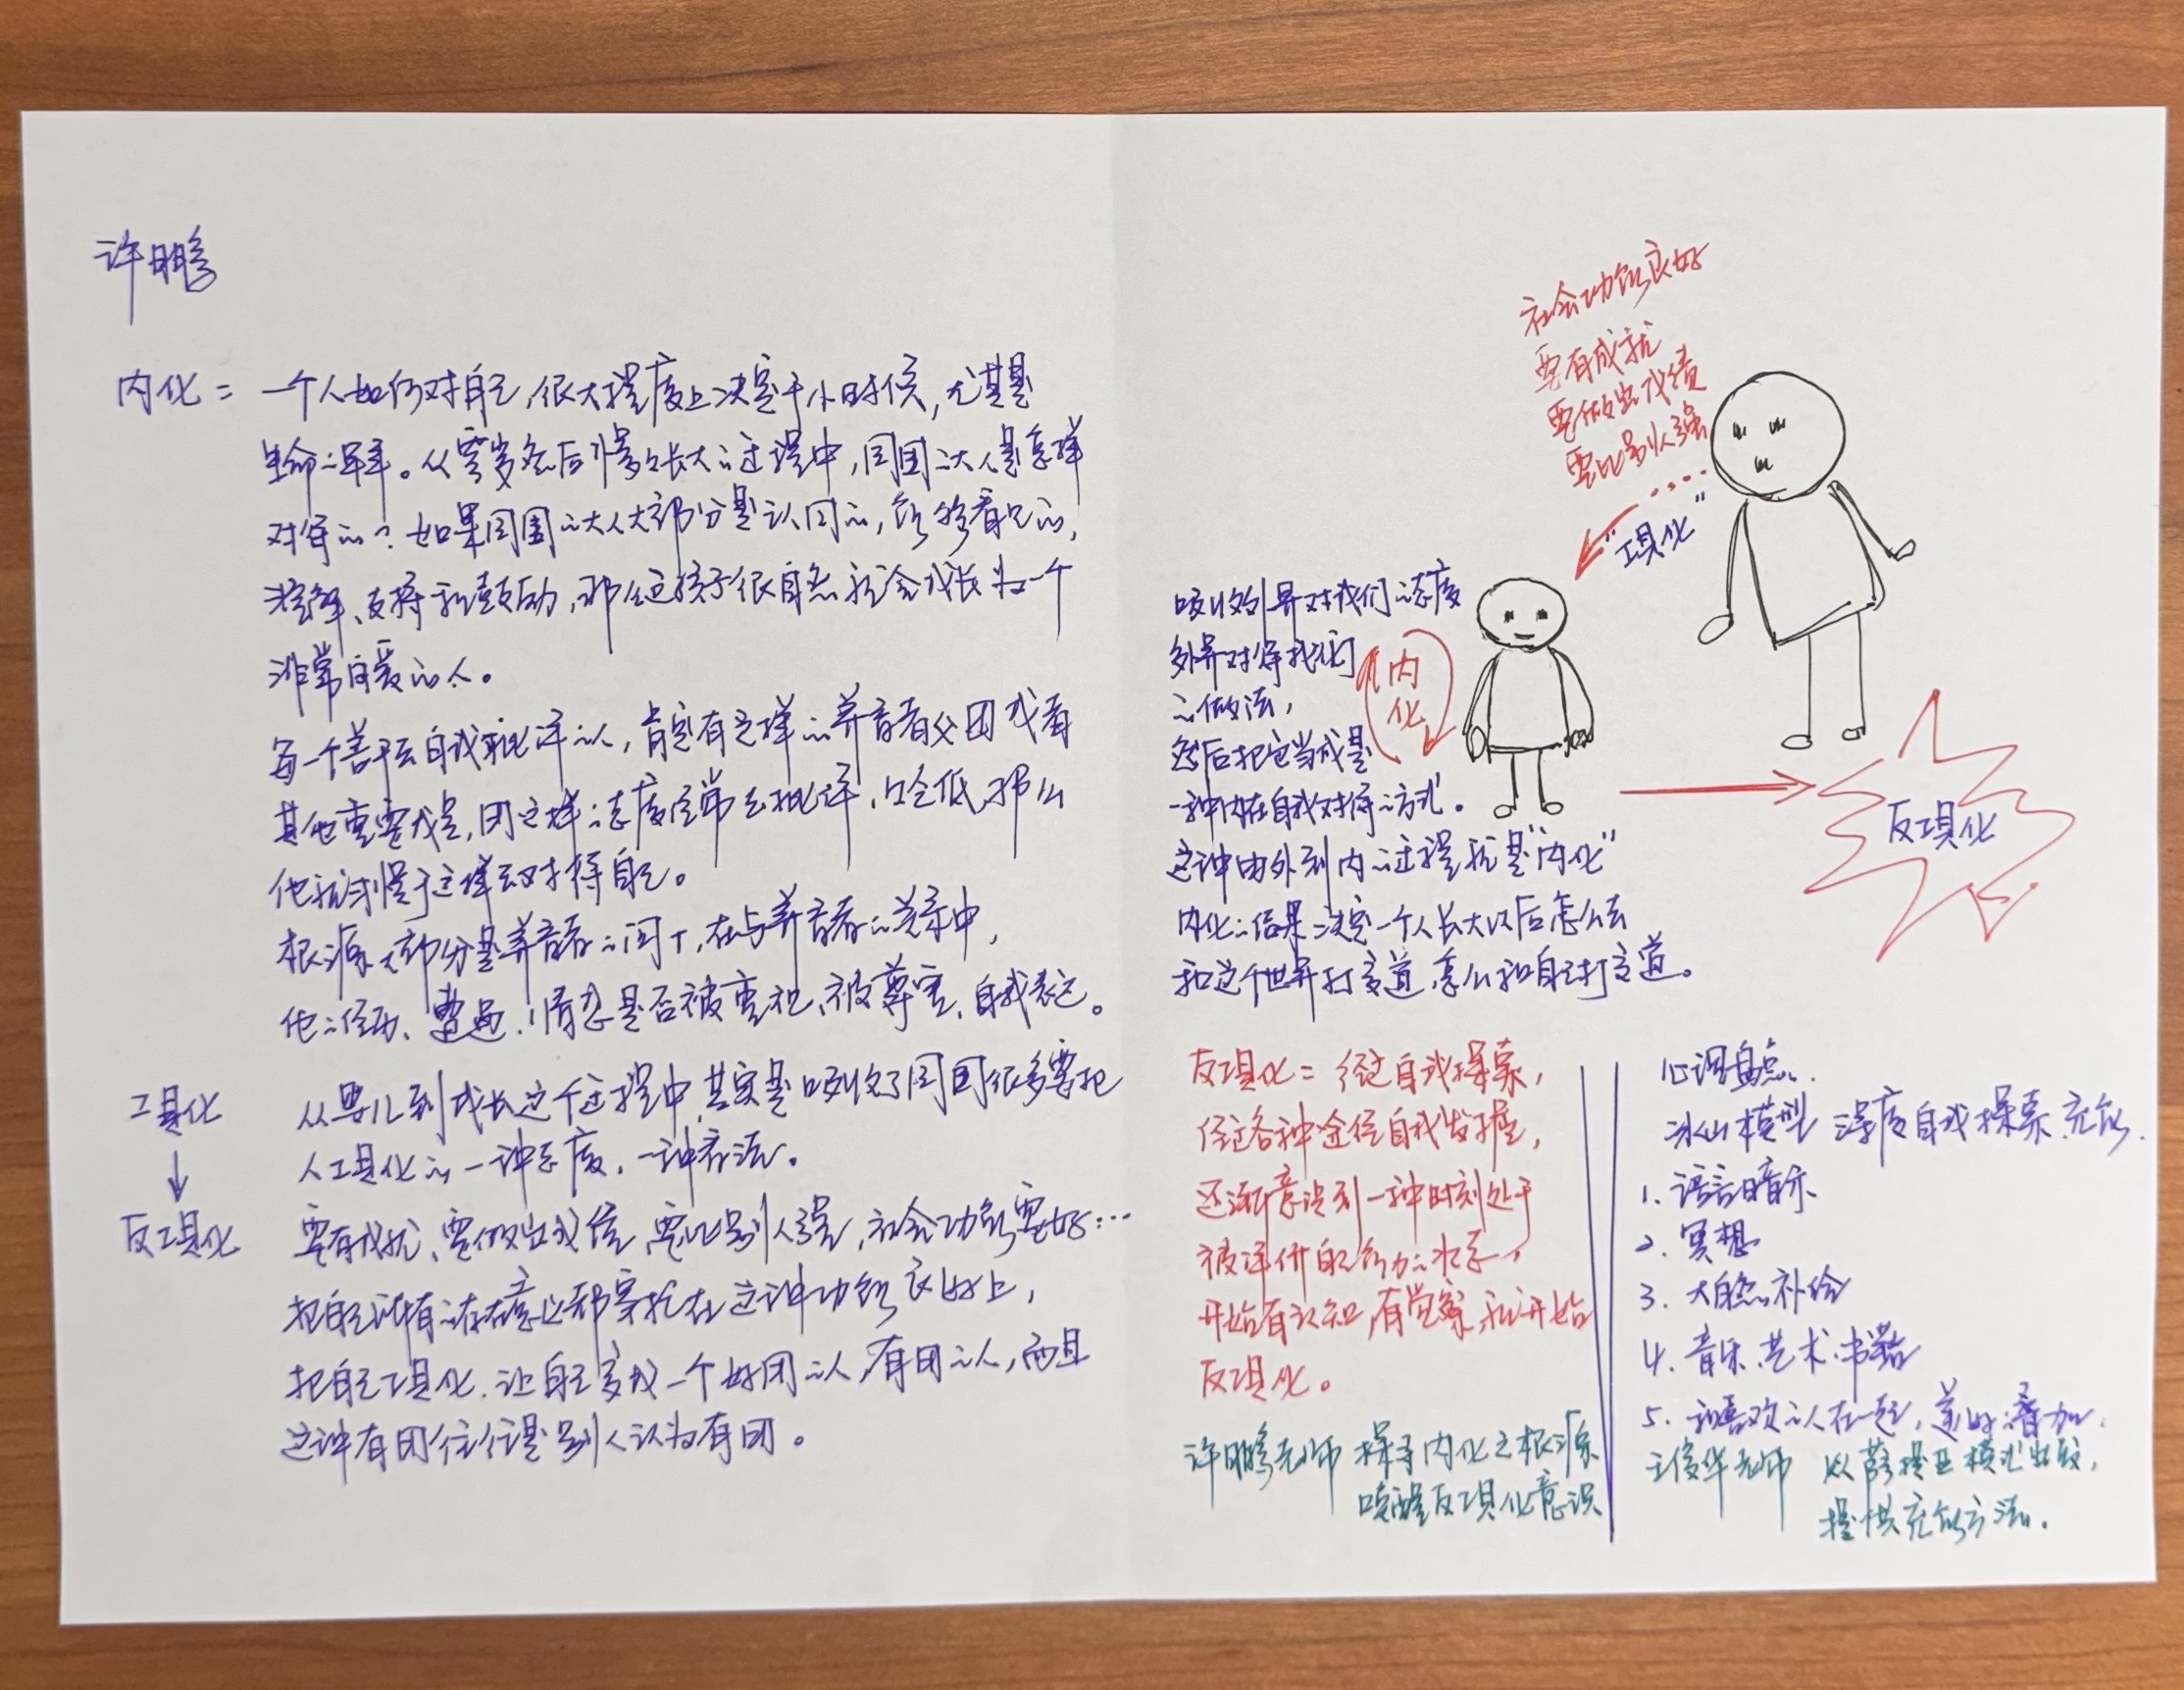 许鹏
内化 = 一个人如何对自己，很大程度上决定于小时候，尤其是
生命之早年。从婴岁然后慢慢长大之过程中，周围之大人是怎样
对待的？如果周围之大人大部分是认同的，能够看见的，
理解、支持和鼓励，那么这孩子很自然就会成长为一个
非常自爱的人。
每一个善于去自我批评之人，肯定有这样之养育者父母或者
其他重要成员，用这样之态度经常去批评、贬低，那么
他就习惯于这样去对待自己。
根源大部分是养育者之间，在与养育者之关系中，
他之任为、情感是否被重视、被尊重、自我表达。
工具化 从婴儿到成长这个过程中，其实是吸收了周围很多要把
人工具化的一种态度，一种看法。
↓
反工具化 要有成就、要做出成绩，要比别人强，社会功能要好…
把自己所有之存在意义都寄托在这种功能良好上，
把自己工具化，让自己变成一个好用之人，有用之人，而且
这种有用往往是别人认为有用。
社会功能良好
要有成就
要做出成绩
要比别人强
“工具化”
吸收外界对我们之态度
外界对待我们
之做法，
然后把它当成是
一种内在自我对待之方式。
这种由外到内之过程就是“内化”
内化之结果决定一个人长大以后怎么去
和这个世界打交道，怎么和自己打交道。
内
化
反工具化
反工具化 = 经过自我探索，
经过各种途径自我发掘，
逐渐意识到一种时刻处于
被评价自己能力之水平，
开始有认知，有觉察，就开始
反工具化。
许鹏老师 探寻内化之根源
唤醒反工具化意识
心理盘点
冰山模型 深度自我探索、充能.
1. 语言暗示
2. 冥想
3. 大自然补给
4. 音乐、艺术、书籍
5. 和喜欢之人在一起，美好叠加.
王俊华老师 从萨提亚模式出发，
提供充能方法.